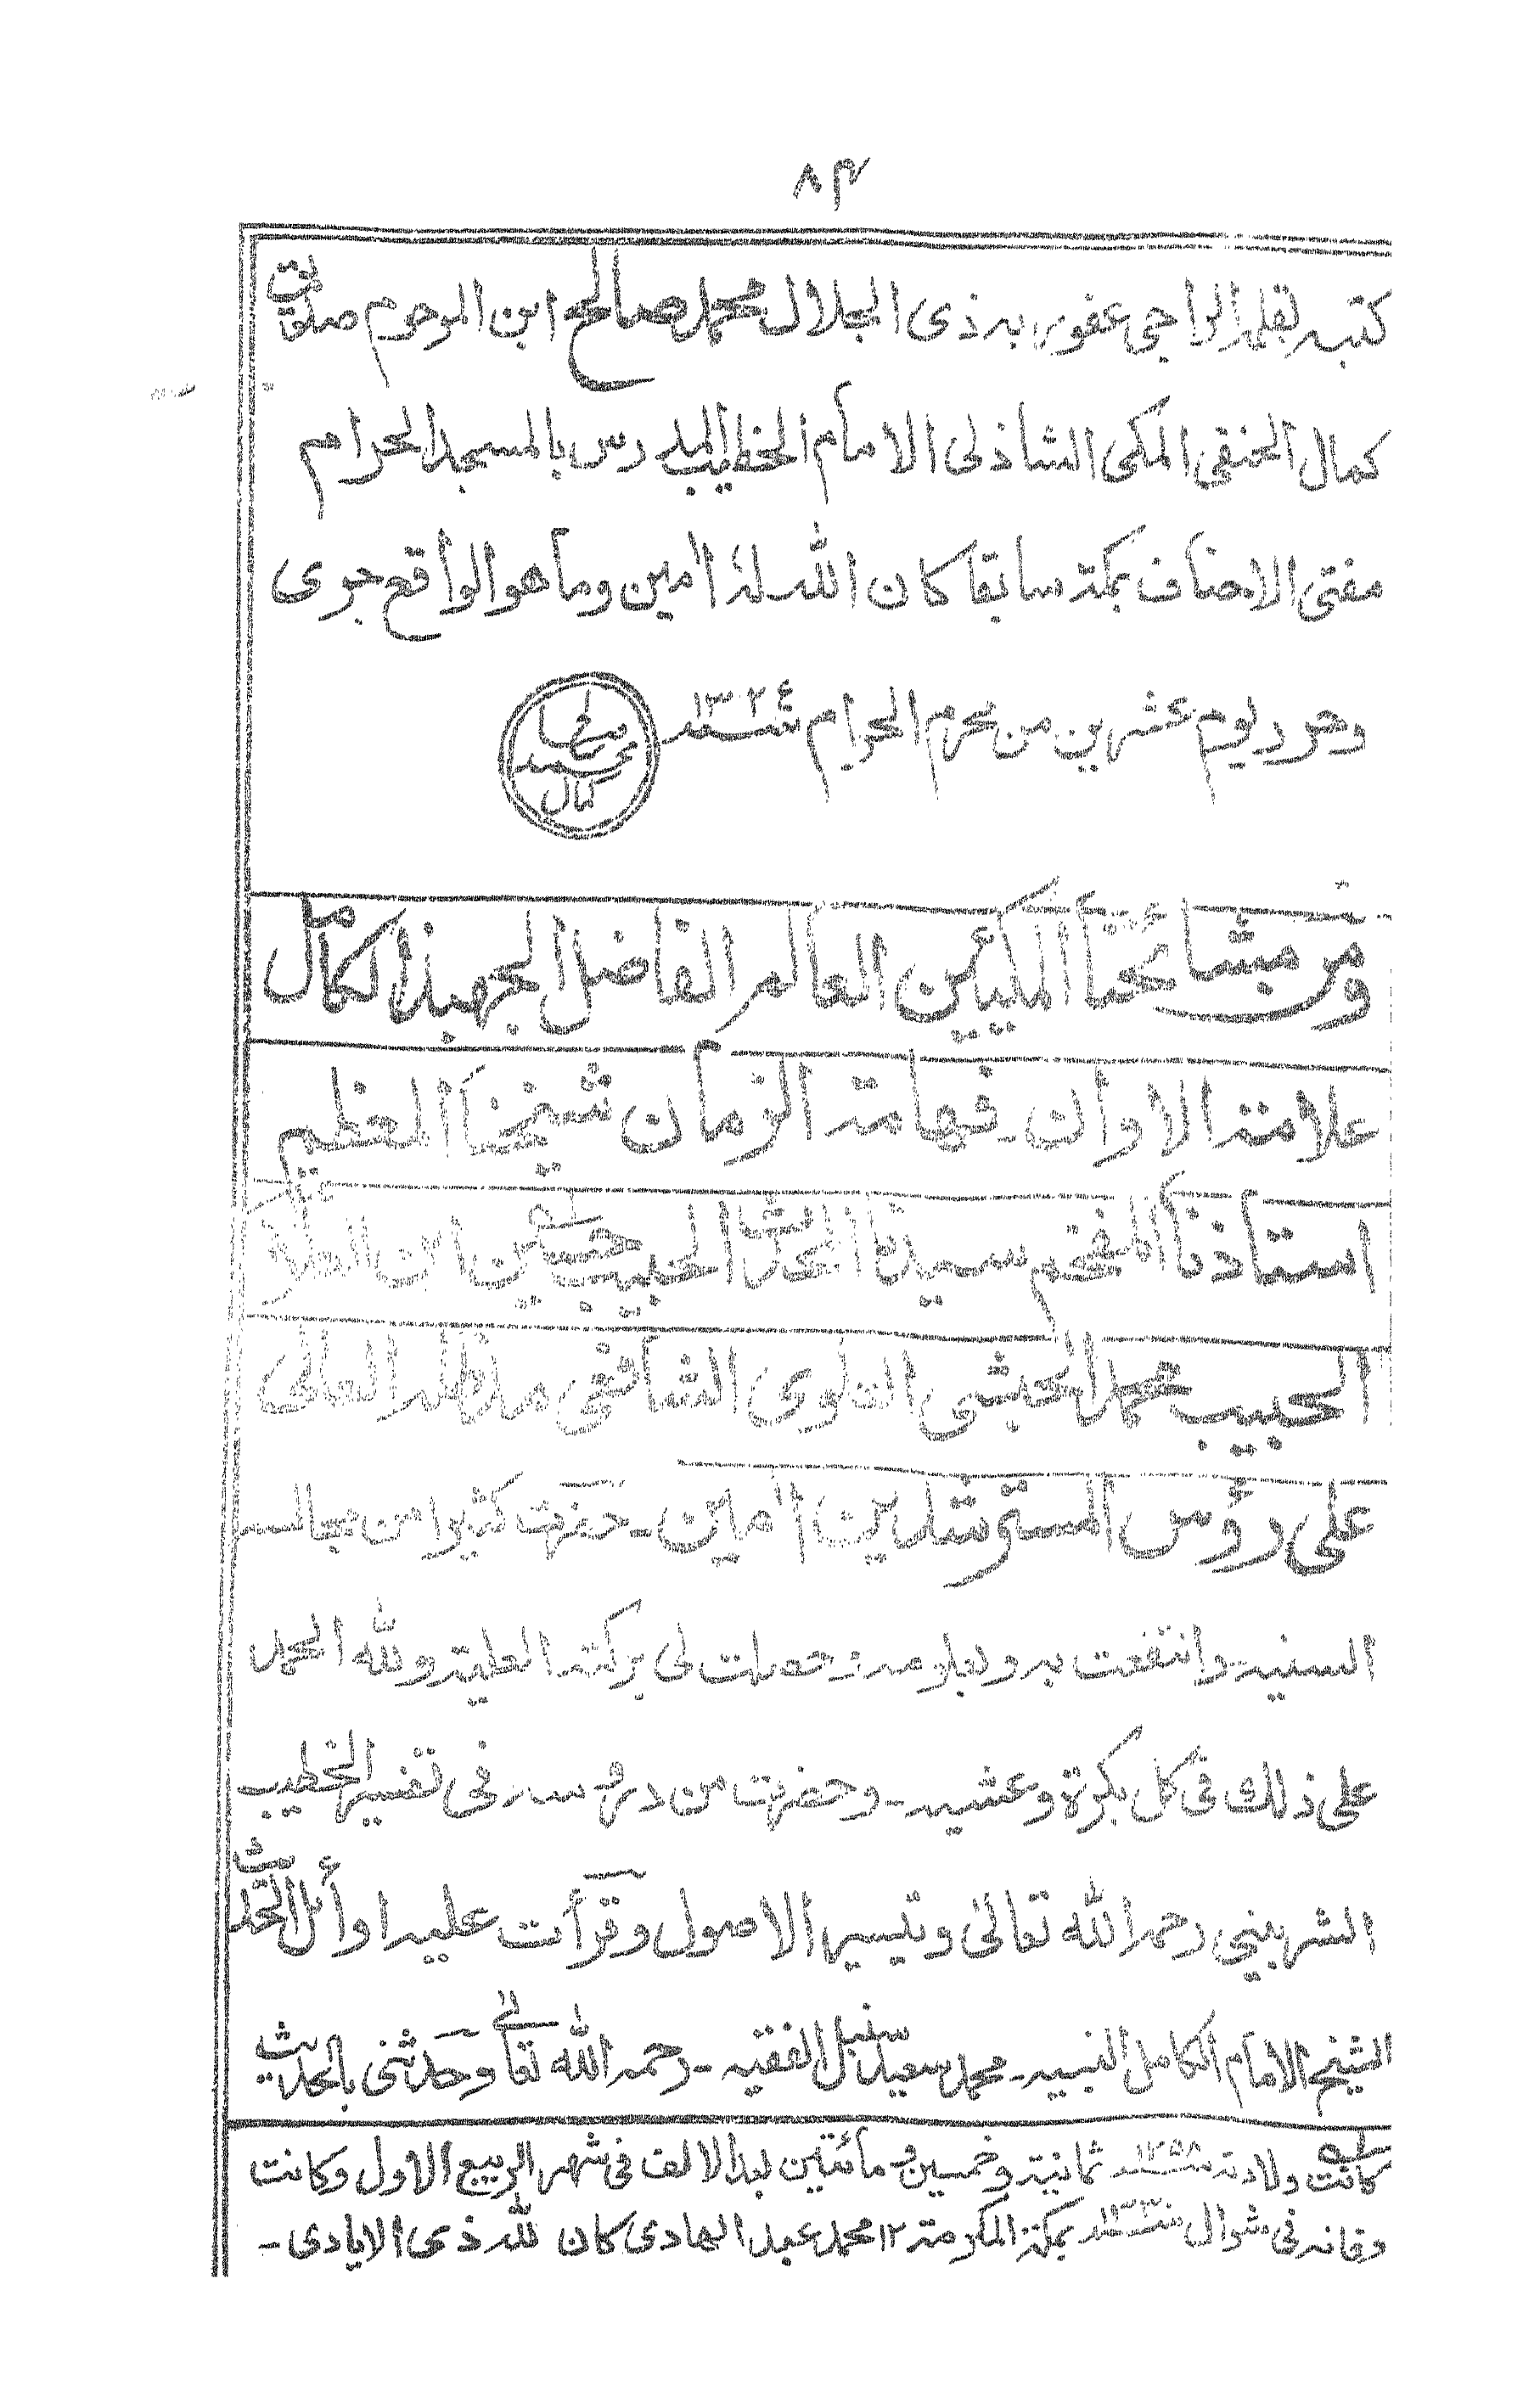 ۸۴
كتبه بقلمه الراجي عفو ربه ذي الجلال محمد صالح ابن المرحوم صديق
كمال الحنفي المكي الشاذلي الامام الخطيب المدرس بالمسجد الحرام
مفتي الاحناف بمكة سابقا كان الله له اٰمين وما هو الواقع جرى
وحرر يوم عشرين من محرم الحرام سنة ١٣٢٤
صالح
محمد
كمال
ومن مشائخنا المكيين العالم الفاضل الجهبذ الكامل
علامة الاوان۔ فهامة الزمان شيخنا المعظم
استاذنا المفخم سيدنا المحدث الحبيب حسين ابن
الحبيب محمد الحبشي العلوي الشافعي مد ظله العالى
على رؤس المسترشدين اٰمين۔ حضرت كثيرا من مجالسه
السنية۔ وانتفعت به وبعلومه۔ وحصلت لى بركته العلية ولله الحمد
على ذلك في كل بكرة وعشيه۔ وحضرت من دروسه فى تفسير الخطيب
الشربيني رحمه الله تعالىٰ وتيسير الاصول وقرأت عليه اوائل الحديث
الشيخ الامام الكامل النبيه۔ محمد سعيد سنبل الفقيه۔ رحمه الله تعالىٰ وحدثنى بالحديث
كانت ولادته سنة ١٢٥٨ ثمانية وخمسين ومائتين بعد الالف فى شهر الربيع الاول وكانت
وفاته فى شوال بمكة المكرمة ١٢ محمد عبد الهادى كان لله ذى الايادى۔